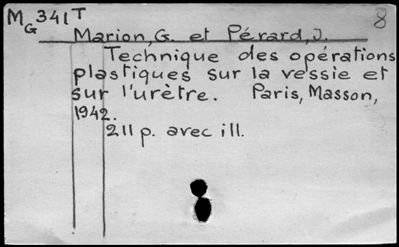 MG 341T
8
Marion, G. et Pérard, J.
Technique des opérations
plastiques sur la vessie et
sur l'urètre. Paris, Masson,
1942.
211 p. avec ill.